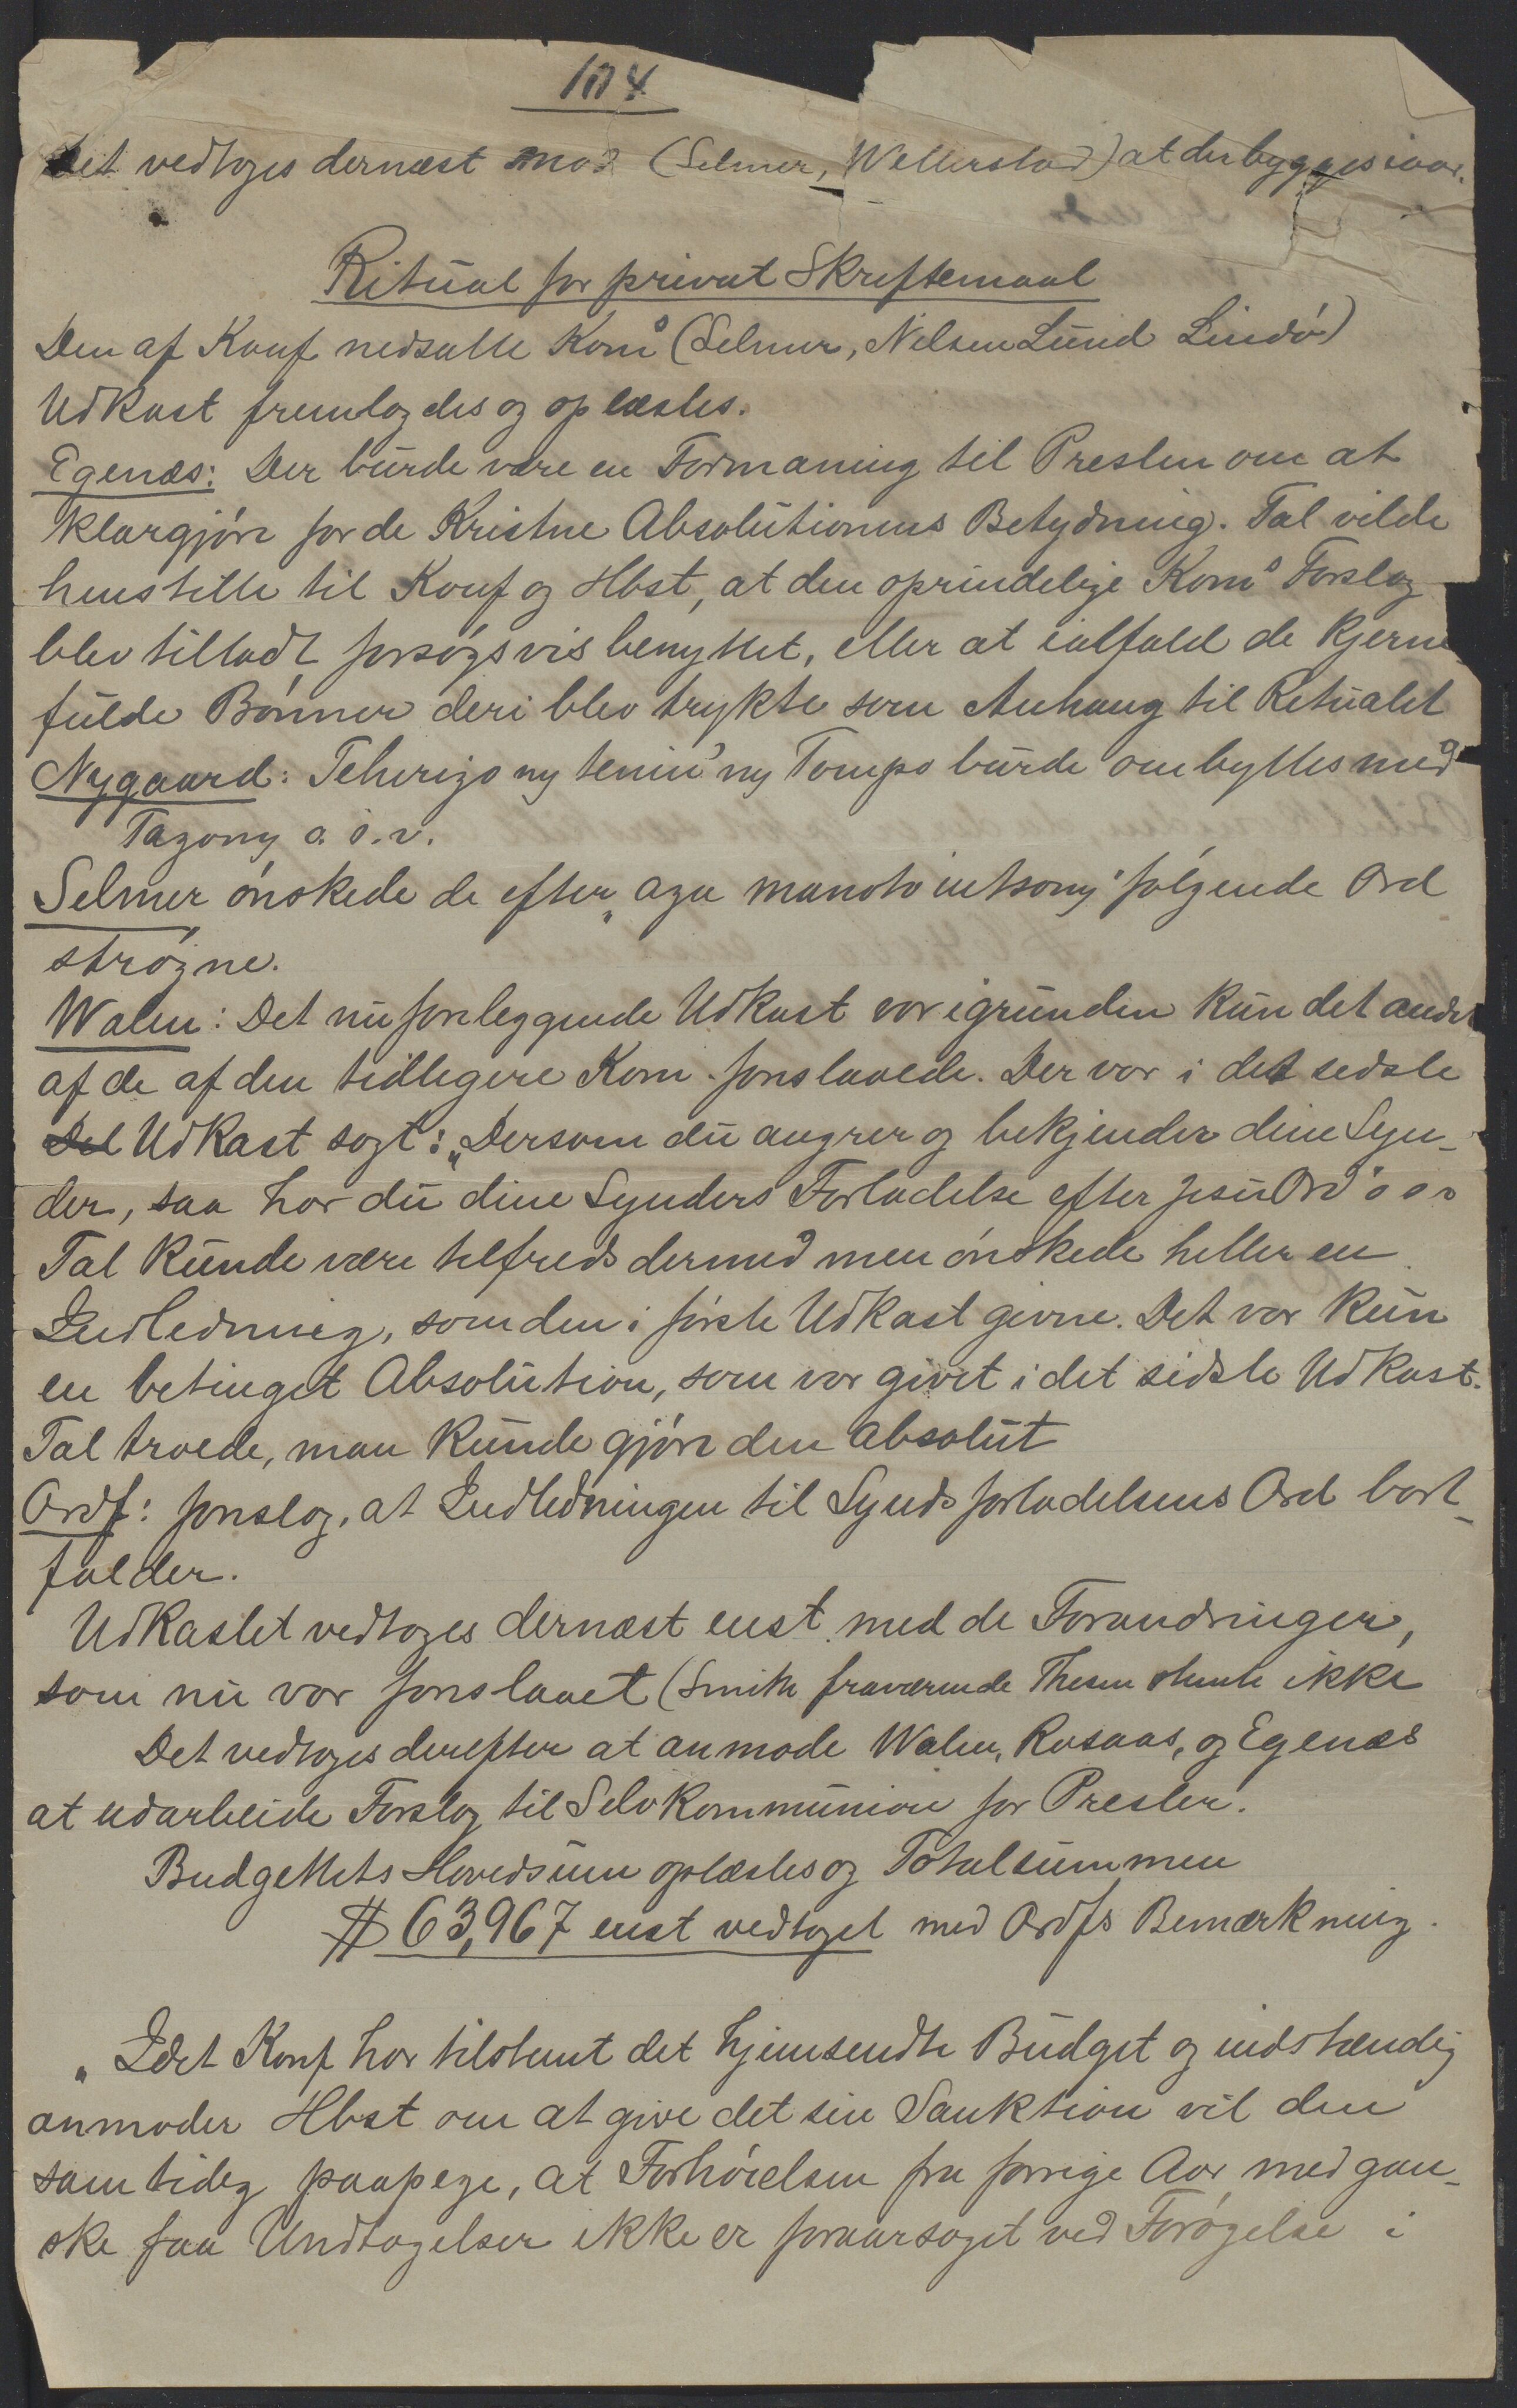 104
Det vedtoges dernæst mod (Selmer, Wellerstad) at der bygges iaar.
Ritual for privat Skriftemaal
Den af Konf nedsatte Koms (Selmer, Nilsen Lund Lindø)
Udkast fremlagdes og oplæstes.
Egenæs: Der burde være en Formaning til Presten om at
klargjøre for de Kristne Absolutionens Betydning. Tal vilde
henstille til Konf og Hbst, at den oprindelige Koms Forslag
blev tilladt forsøgsvis benyttet, eller at ialfald de kjerne
fulde Bønner deri blev trykte som Anhang til Ritualet
Nygaard: Teherezo ny tenin' ny Tompo burde ombyttes med
Tazony o. s. v.
Selmer ønskede de efter „aza manota intsony" følgende Ord
strøgne.
Walen: Det nu foreliggende Udkast var igrunden kun det andet
af de af den tidligere Kom. foreslaaede. Der var i det sidste
Det Udkast sagt: „Dersom du angrer og bekjender dine Syn-
der, saa har du dine Synders Forladelse efter Jesu Ord" o s v
Tal kunde være tilfreds dermed men ønskede heller en
Indledning, som den i første Udkast givne. Det var kun
en betinget Absolution, som var givet i det sidste Udkast.
Tal troede, man kunde gjøre den absolut
Ordf: foreslog, at Indledningen til Syndsforladelsens Ord bort-
falder.
Udkastet vedtoges dernæst enst. med de Forandringer,
som nu var foreslaaet (Smith fraværende Thesen stemte ikke
Det vedtoges derefter at anmode Walen, Rosaas, og Egenæs
at udarbeide Forslag til Selvkommunion for Prester.
Budgettets Hovedsum oplæstes og Totalsummen
$ 63,967 enst vedtaget med Ordfs Bemærkning.
„Idet Konf har tilstemt det hjemsendte Budget og indstændig
anmoder Hbst om at give det sin Sanktion vil den
samtidig paapege, at Forhøielsen fra forrige Aar med gan-
ske faa Undtagelser ikke er foraarsaget ved Forøgelse i